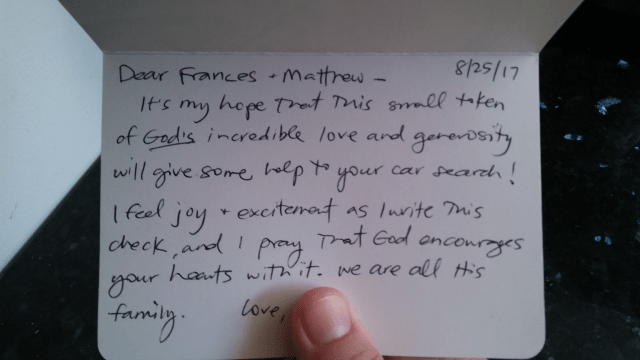 8/25/17
Dear Frances + Matthew -
It's my hope that this small token
of God's incredible love and generosity
will give some help to your car search!
I feel joy + excitement as I write this
check, and I pray that God encourages
your hearts with it. We are all His
family. Love,